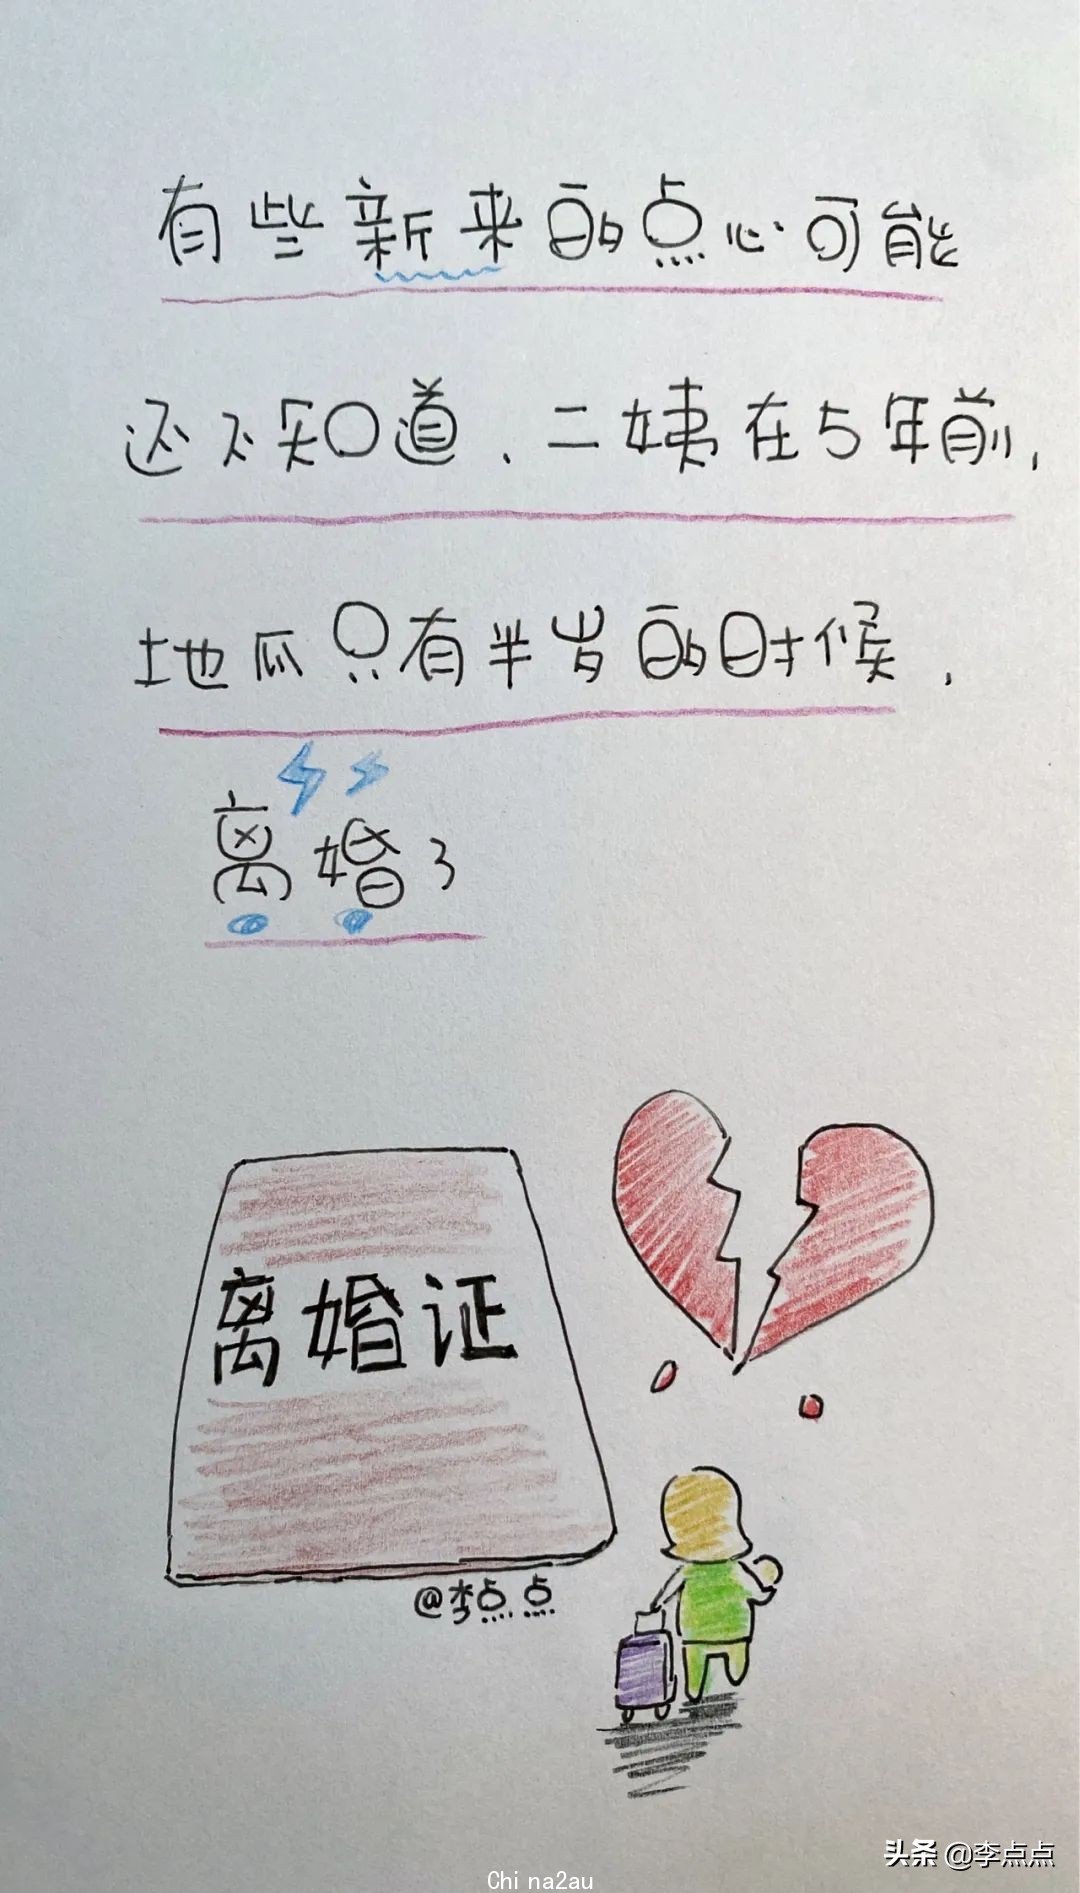 有些新来的点心可能
还不知道，二姨在5年前，
地瓜只有半岁的时候，
离婚了
离婚证
@李点点
头条 @李点点
China2au